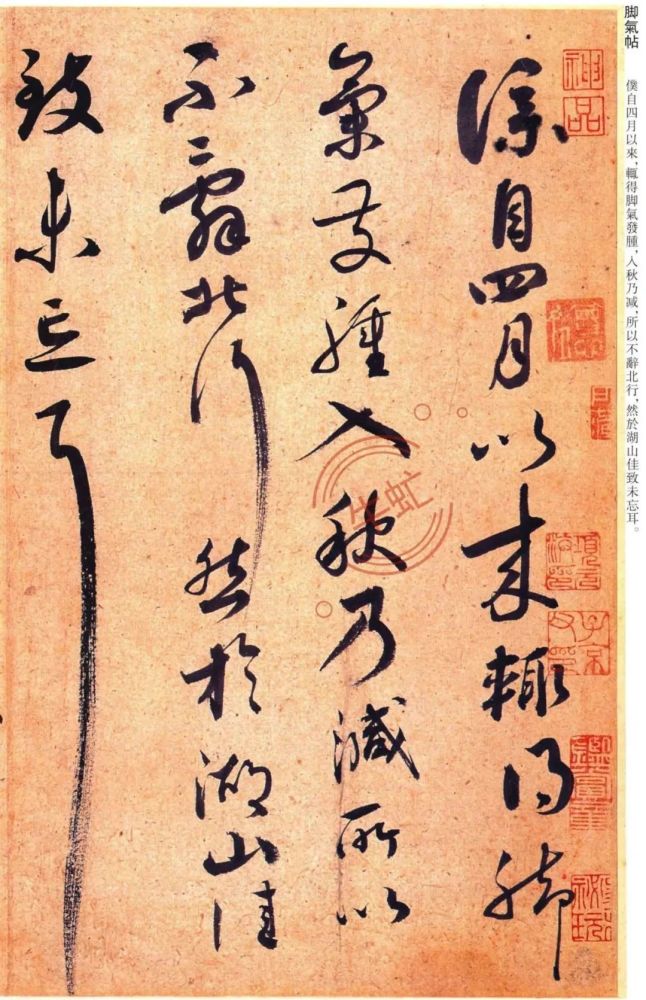 脚氣帖
僕自四月以來，輒得脚氣發腫，入秋乃減，所以不辭北行，然於湖山佳致未忘耳。
神品
僕自四月以來輒得脚
氣發腫入秋乃減所以
不辭北行然於湖山佳
致未忘耳
子京